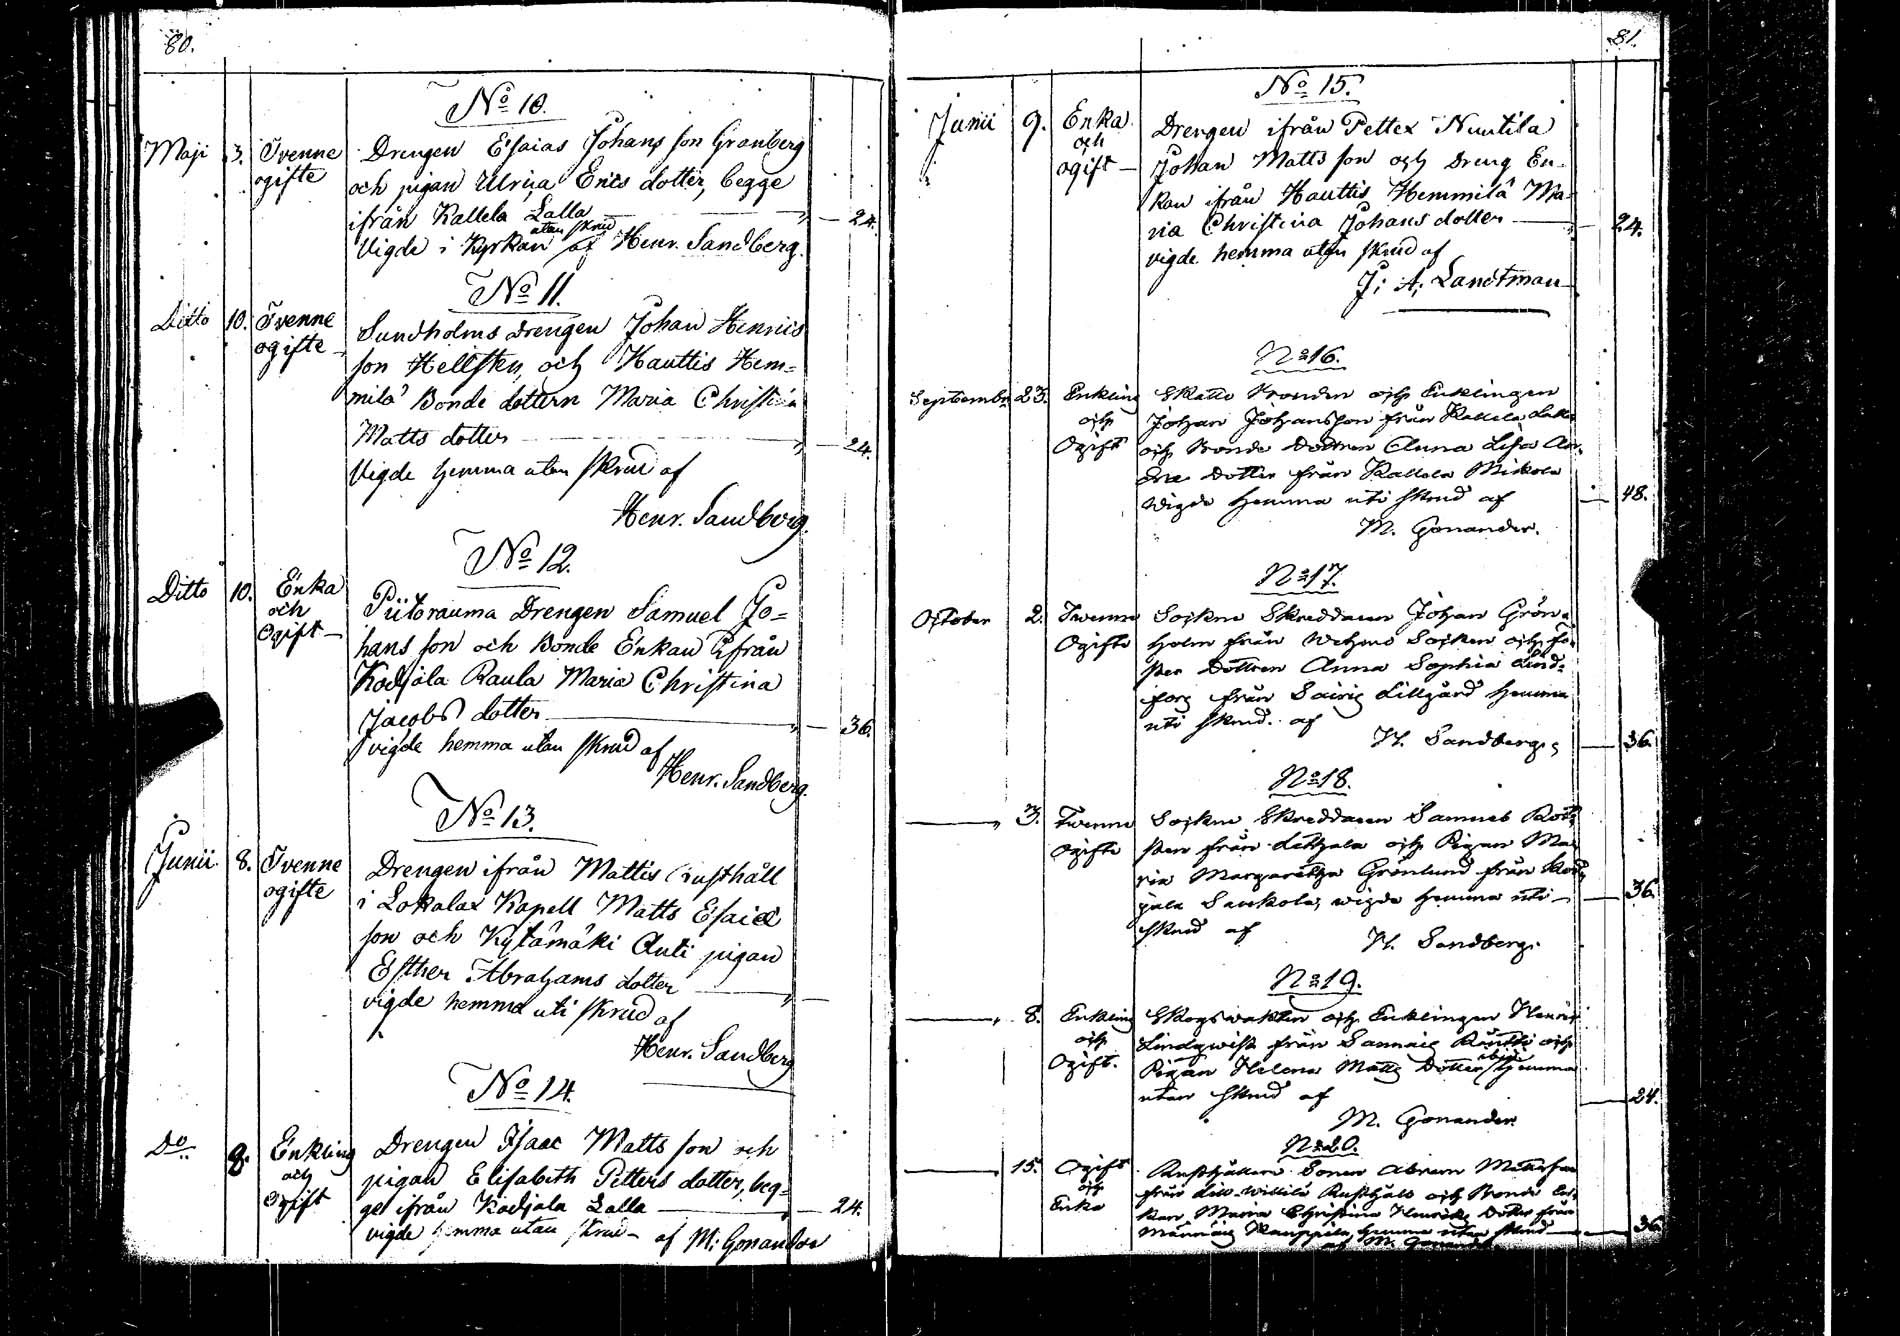 80.
No 10.
Maji 3. Tvenne ogifte
Drengen Esaias Johans son Granberg
och pigan Ulrica Erics dotter, begge
ifrån Kallela Lalla 24.
Vigde i Kyrkan utan skrud af Henr. Sandberg.
No 11.
Ditto 10. Tvenne ogifte
Sundholms Drengen Johan Henrics
son Hellsten, och Hauttis Hem=
milä Bonde dottern Maria Christina
Matts dotter 24.
Vigde hemma utan skrud af
Henr. Sandberg.
No 12.
Ditto 10. Enka och Ogift
Piitorauma Drengen Samuel Jo=
hans son och Bonde Enkan ifrån
Kodjala Raula Maria Christina
Jacobs dotter 36.
vigde hemma utan skrud af
Henr. Sandberg.
No 13.
Junii 8. Tvenne ogifte
Drengen ifrån Mattis Rusthåll
i Lokalax Kapell Matts Esaiæ
son och Kytämäki Anti pigan
Esther Abrahams dotter
vigde hemma uti skrud af
Henr. Sandberg
No 14.
Do 8. Enkling och Ogift
Drengen Isaac Matts son och
pigan Elisabeth Petters dotter, beg=
ge ifrån Kodjala Lalla 24.
vigde hemma utan skrud af M: Gonander
81.
No 15.
Junii 9. Enka och ogift
Drengen ifrån Pettex Nuutila
Johan Matts son och Dreng En-
kan ifrån Hauttis Hemmilä Ma-
ria Christina Johans dotter 24.
vigde hemma utan skrud af
J: A: Landtman
No 16.
September 23. Enkling och Ogift
Skatte Bonden och Enklingen
Johan Johansson från Kallela
och Bonde Dottren Anna Lisa
Dotter från Kallela Mikola
wigde hemma uti skrud af 48.
M. Gonander.
No 17.
October 2. Twenne Ogifte
Sockne Skreddaren Johan Grön=
holm från Wehmo Socken och
Dottren Anna Sophia Lind=
fors från Lillgård hemma
uti skrud. af
H. Sandberg. 36.
No 18.
3. Twenne Ogifte
Sockne Skreddaren Samuel
från Laihjala och Pigan Ma
ria Margaretha Grönlund från Kod
jala Saukola, wigde hemma uti 36.
skrud af
H. Sandberg.
No 19.
8. Enkling och Ogift.
Skogswakten och Enklingen Henric
Lindqwist från Sannais och
Pigan Helena Matts Dotter hemma
utan skrud af 24.
M. Gonander.
No 20.
15. Ogift och Enka
Rusthållare Sonen Abram Mattsson
från Rusthåll och Bonde En=
kan Maria Christina Henrics Dotter från
Kauppila, hemma utan skrud 36.
af M. Gonander